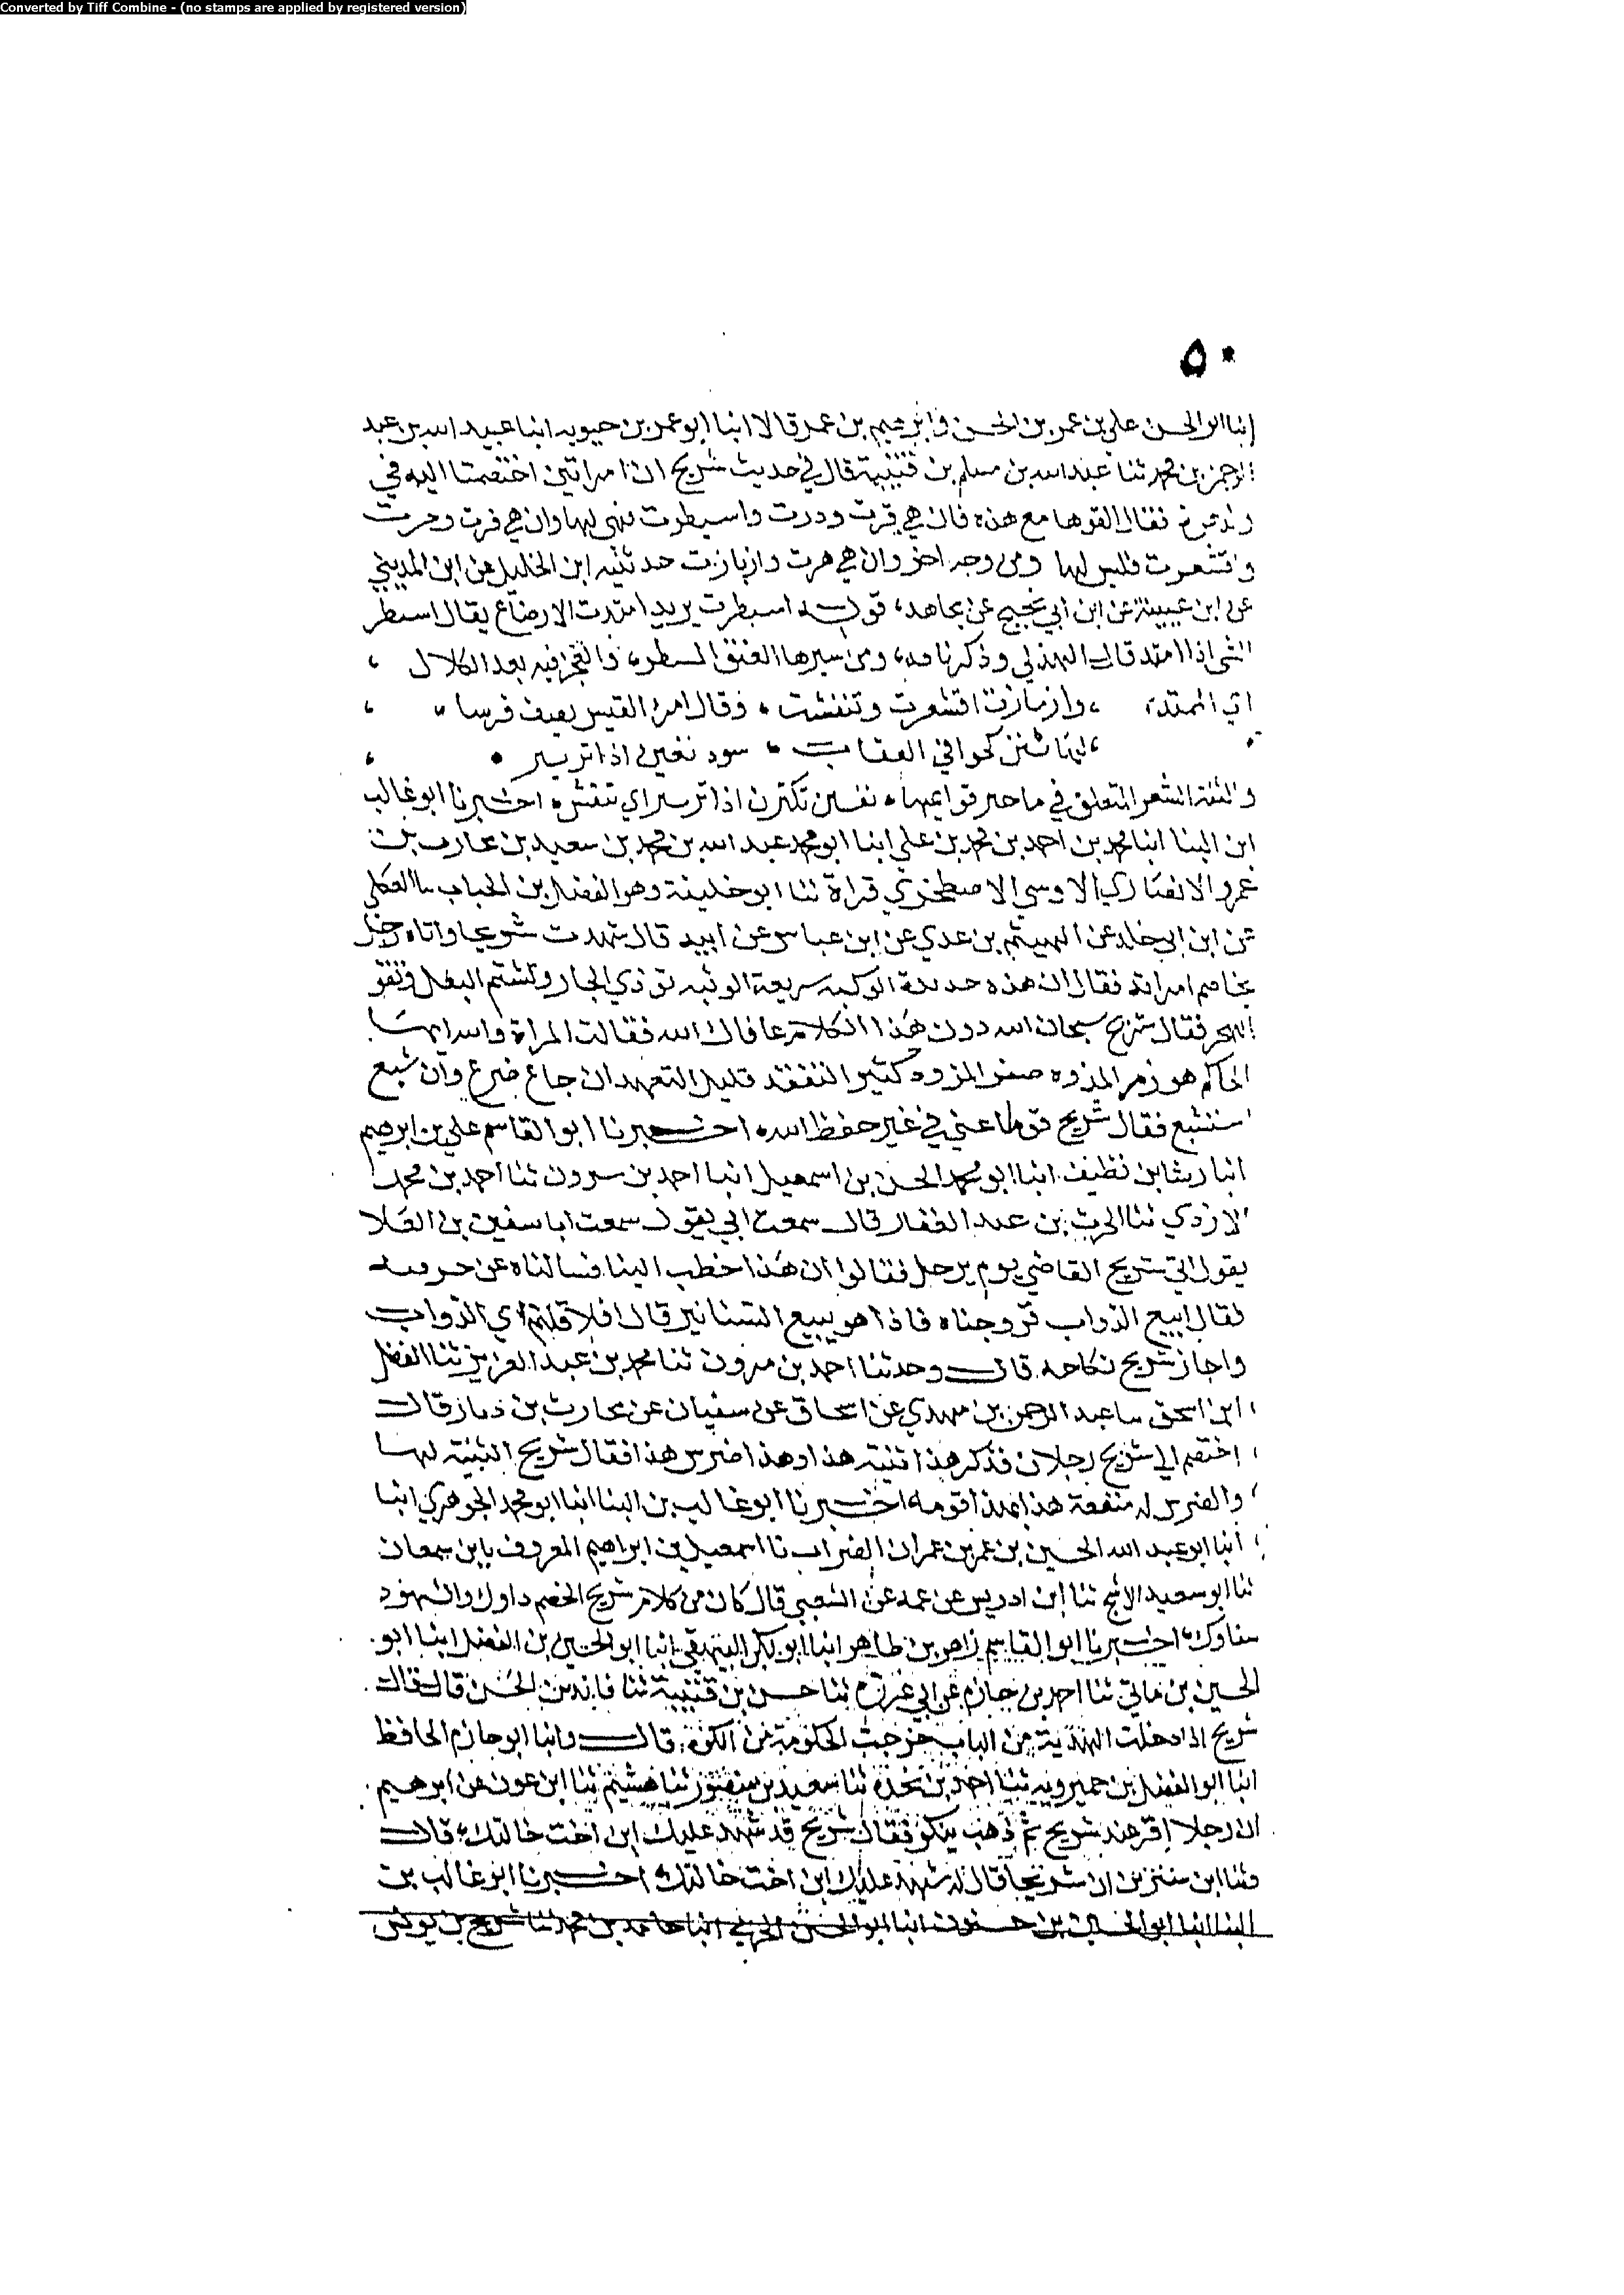 Converted by Tiff Combine - (no stamps are applied by registered version)
٥٠
انبا ابو الحسن علي بن عمر بن الحسن وابرهيم بن عمر قالا انبا ابو عمر بن حيويه انبا عبيد الله بن عبد
الرحمن بن محمد ثنا عبد الله بن مسلم بن قتيبة قال في حديث شريح ان امراتين اختصمتا اليه في
ولد هرة فقال القوها مع هذه فان هي قرت ودرت واسبطرت فهي لها وان هي فرت وهرت
واقشعرت فليس لها ومن وجه اخر وان هي هرت وازبارت حدثنيه ابن الخليل عن ابن المديني
عن ابن عيينة عن ابن ابي نجيح عن مجاهد، قوله اسبطرت يريد امتدت للارضاع يقال اسبطر
الشي اذا امتد قال الهذلي وذكر ناقه، ومن سيرها العنق المسبطر، والعجرفيه بعد الكلال ،
اي الممتد، ، وازبارت اقشعرت وتنفشت ، وقال امرؤ القيس يصف فرسا ،
، لها ثنن كخوافي العقاب ، سود يفين اذا تزبئر ،
والثنة الشعر المتعلق في ماخير قوايمها، يفين تكثرن اذا تزبئر اي تنفش، اخبرنا ابو غالب
ابن البنا انبا محمد بن احمد بن محمد بن علي انبا ابو محمد عبد الله بن محمد بن سعيد بن محارب بن
عمرو الانصاري الاوسي الاصطخري قراة ثنا ابو خليفة وهو الفضل بن الحباب العكلي
عن ابن ابي خالد عن الهيثم بن عدي عن ابن عباس عن ابيه قال شهدت شريحا واتاه رجل
يخاصم امراته فقال ان هذه حديدة الركبه سريعة الوثبه توذي الجار وتشتم البعل وتنقو
فقال شريح سبحان الله دون هذا الكلام عافاك الله فقالت المراة والله ايها
الحاكم هو زمر المروه صفر المزود كثير التفقد قليل التعهد ان جاع ضرع وان شبع
استشبع فقال شريح قوما عني في غير حفظ الله، اخبرنا ابو القاسم علي بن ابرهيم
انبا رشا بن نظيف انبا ابو محمد الحسن بن اسمعيل انبا احمد بن مروان ثنا احمد بن محمد
الازدي ثنا الحرث بن عبد الغفار قال سمعت ابي يقول سمعت ابا سفين بن العلا
يقول اتي شريح القاضي يوم برجل فقالوا ان هذا خطب الينا فسالناه عن حرفته
فقال ابيع الدواب فزوجناه فاذا هو يبيع السنانير قال افلا قلتم اي الدواب
واجاز شريح نكاحه قال وحدثنا احمد بن مروان ثنا محمد بن عبد العزيز ثنا الفضل
ابن اسحق عبد الرحمن بن مهدي عن اسحاق عن سفيان عن محارب بن دثار قال
اختصم الي شريح رجلان فذكر هذا ثنية هذا وهذا ضرس هذا فقال شريح الثنية لها
والضرس له منفعة هذا بهذا قوما، اخبرنا ابو غالب بن البنا انبا ابو محمد الجوهري انبا
انبا ابو عبد الله الحسين بن عمر بن عمران الضراب نا اسمعيل بن ابراهيم المعروف بابن سمعان
ثنا ابو سعيد الاشج ثنا ابن ادريس عن عمه عن الشعبي قال كان من كلام شريح الخصم داوك والشهود
شفاوك، اخبرنا ابو القاسم زاهر بن طاهر انبا ابو بكر البيهقي انبا ابو الحسين بن الفضل انبا ابو
الحسين بن ماتي ثنا احمد بن حازم بن ابي غرزة ثنا حسن بن قتيبة ثنا الحسن قال قال
شريح اذا دخلت الهدية من الباب خرجت الحكومة من الكوة، قال وانبا ابو حازم الحافظ
انبا ابو الفضل بن خميرويه ثنا احمد بن نجدة ثنا سعيد بن منصور ثنا هشيم ثنا ابن عون عن ابرهيم
ان رجلا اقر عند شريح ثم ذهب ينكر فقال شريح قد شهد عليك ابن اخت خالتك، قال
وثنا ابن سيرين ان شريحا قال له شهد عليك ابن اخت خالتك، اخبرنا ابو غالب بن
البنا انبا ابو الحسين بن حسنون انبا ابو الحسن الحربي انبا حامد بن محمد ثنا شريح بن يونس